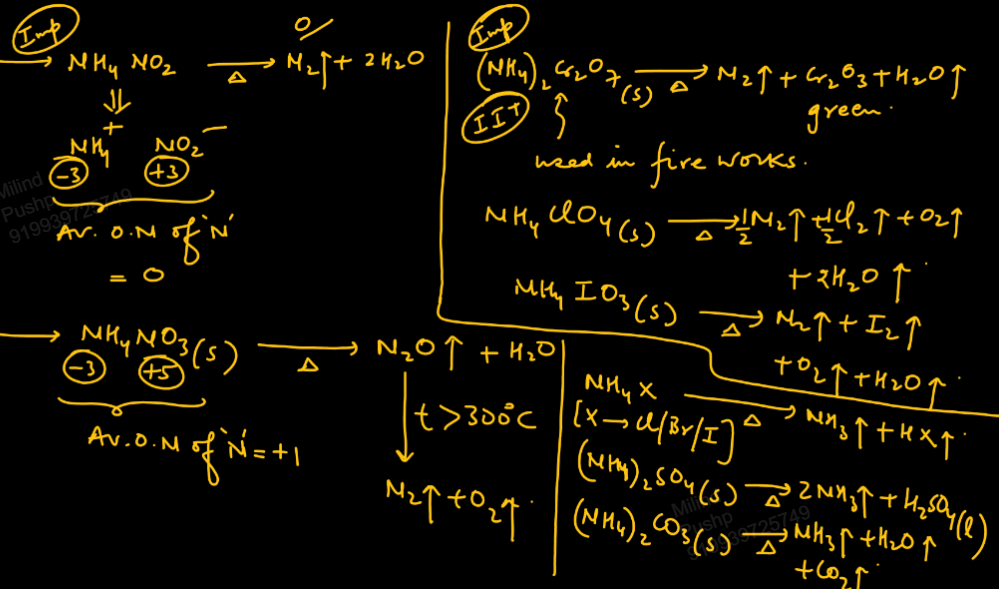 Imp
→ NH4 NO2 →Δ N2↑ + 2H2O
0
⇓
NH4+ NO2−
-3 +3
Av. O.N of 'N'
= 0
→ NH4NO3(s) →Δ N2O↑ + H2O
-3 +5
Av.O.N of 'N' = +1
↓ t > 300°C
N2↑ + O2↑.
Imp
(NH4)2Cr2O7(s) →Δ N2↑ + Cr2O3 + H2O↑
green.
IIT
used in fire works.
NH4ClO4(s) →Δ 1/2 N2↑ + 1/2 Cl2↑ + O2↑
+ 2H2O↑.
NH4IO3(s) →Δ N2↑ + I2↑
+ O2↑ + H2O↑.
NH4X →Δ NH3↑ + HX↑.
[X → Cl/Br/I]
(NH4)2SO4(s) →Δ 2NH3↑ + H2SO4(l)
(NH4)2CO3(s) →Δ NH3↑ + H2O↑
+CO2↑.
Milind
Pushp
919939725749
Milind
Pushp
919939725749